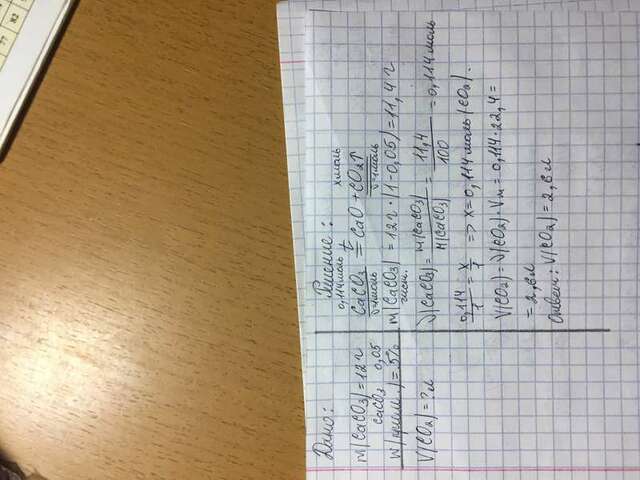 Дано:
m(CaCO₃) = 12 г
CaCO₃ 0,05
W(прим.) = 5%
V(CO₂) = ? л
Решение:
0,114 моль x моль
CaCO₃ t = CaO + CO₂↑
ν=1моль ν=1моль
m(CaCO₃) = 12 г · (1-0,05) = 11,4 г
чист.
ν(CaCO₃) = m(CaCO₃) / M(CaCO₃) = 11,4 / 100 = 0,114 моль
0,114 / 1 = x / 1 => x = 0,114 моль (CO₂).
V(CO₂) = ν(CO₂) · Vм = 0,114 · 22,4 =
= 2,6 л
Ответ: V(CO₂) = 2,6 л